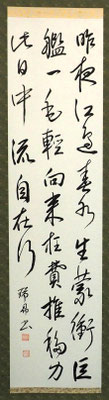 昨夜江邊春水生蒙衝巨
艦一毛輕向来枉費推移力
此日中流自在行